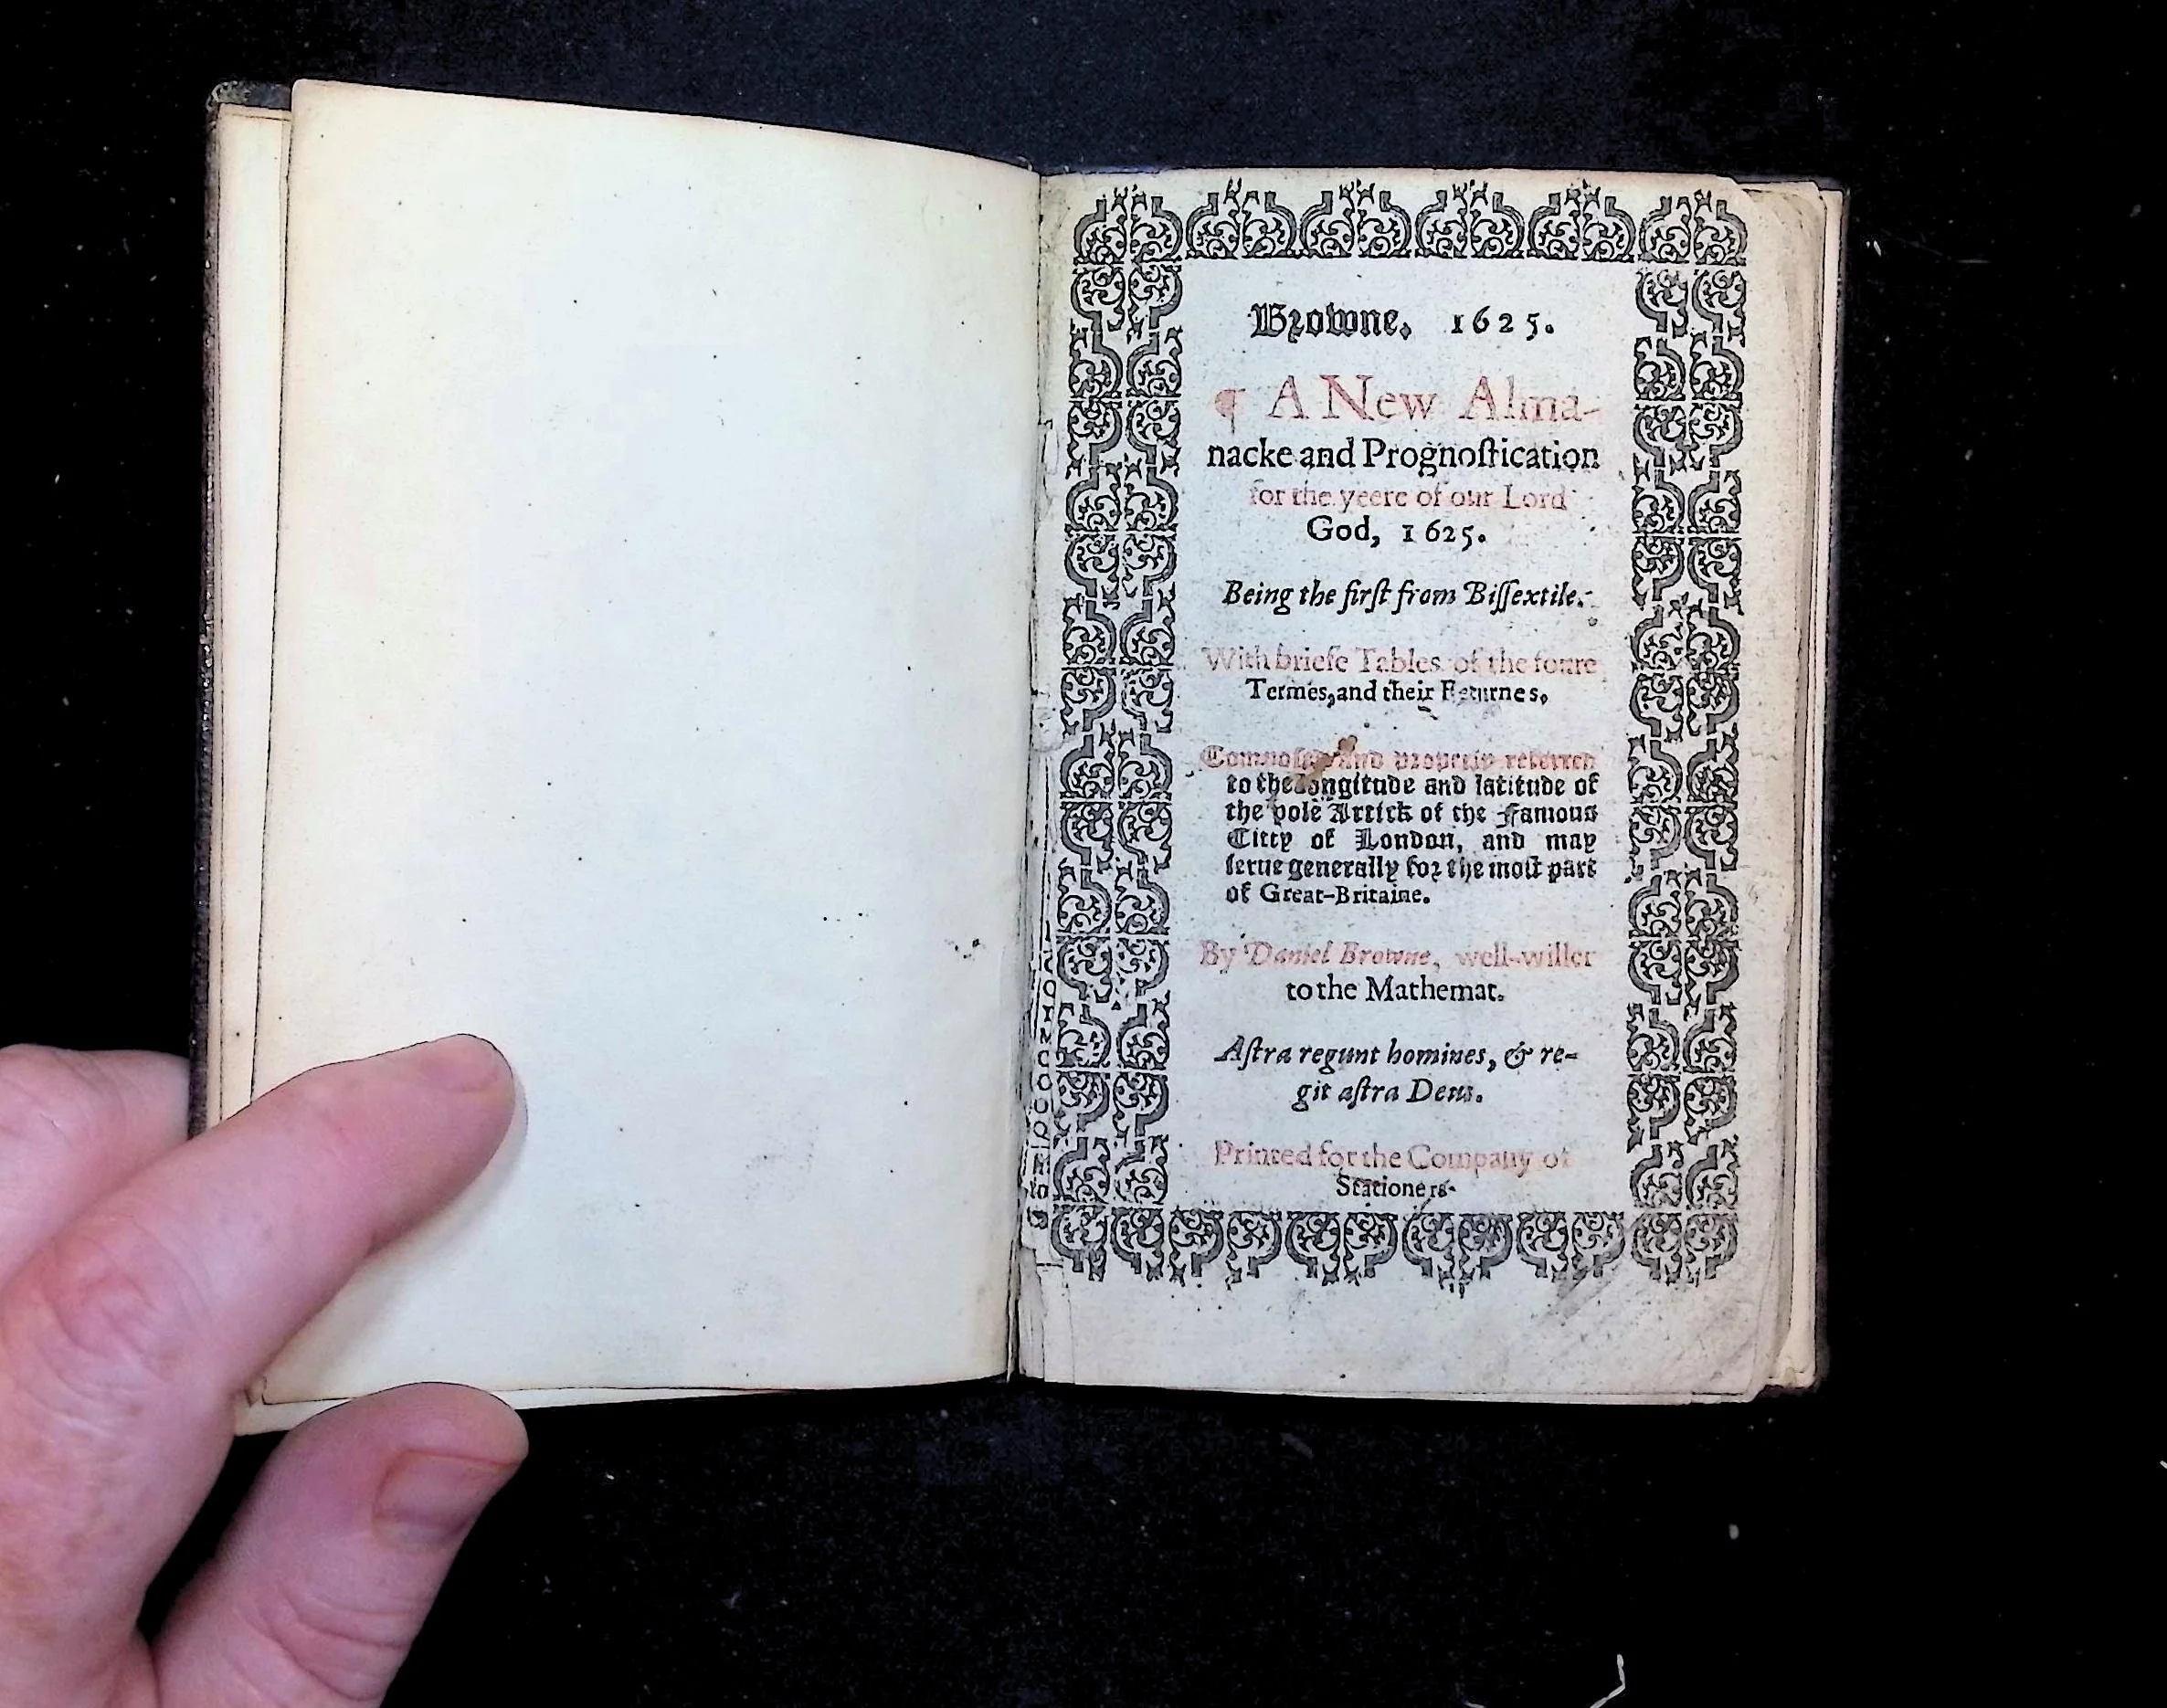 Browne. 1625.
¶ A New Alma-
nacke and Prognoſtication
for the yeere of our Lord
God, 1625.
Being the firſt from Biſſextile.
With briefe Tables of the foure
Termes, and their Returnes.
Compoſed and properly referred
to the longitude and latitude of
the pole Artick of the Famous
Citty of London, and may
ſerue generally for the moſt part
of Great-Britaine.
By Daniel Browne, well-willer
to the Mathemat.
Aſtra regunt homines, & re-
git aſtra Deus.
Printed for the Company of
Stationers.